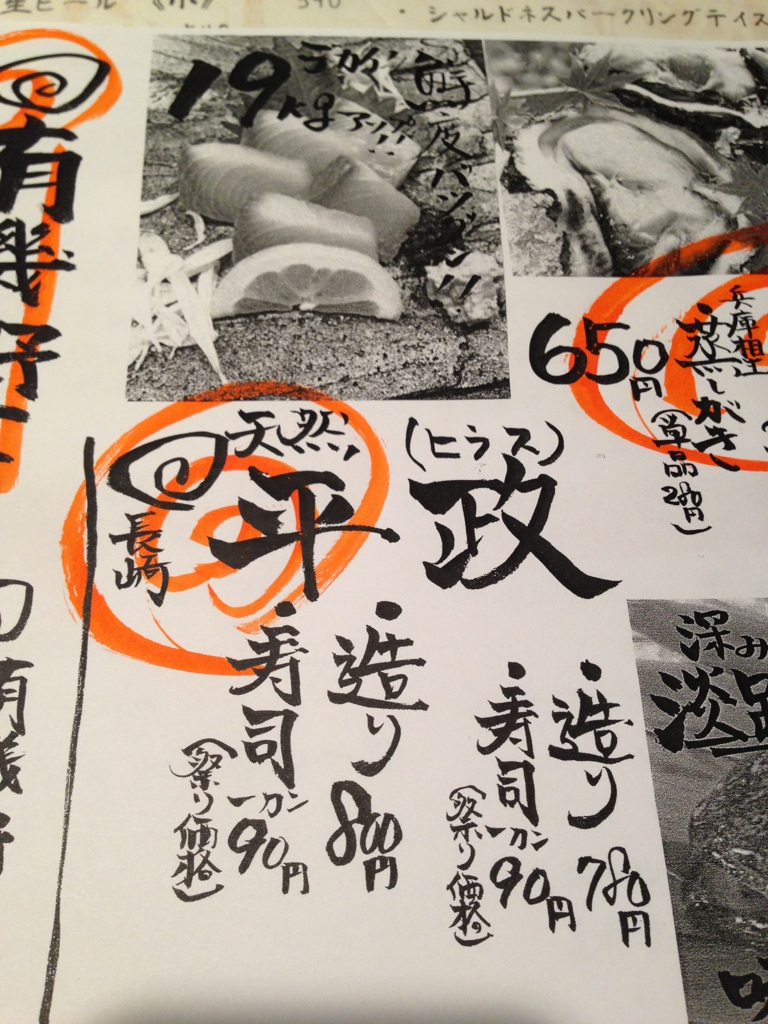 生ビール 《小》 390
・シャルドネスパークリングティス
有機
19kg
鮮度バツグン!!
兵庫相生
蒸しがき
650円
(単品280円)
天然
平政
(ヒラス)
長崎
・造り 800円
・寿司 一カン 90円
(祭り価格)
・造り 780円
・寿司 一カン 90円
(祭り価格)
深み
淡路
有機
味